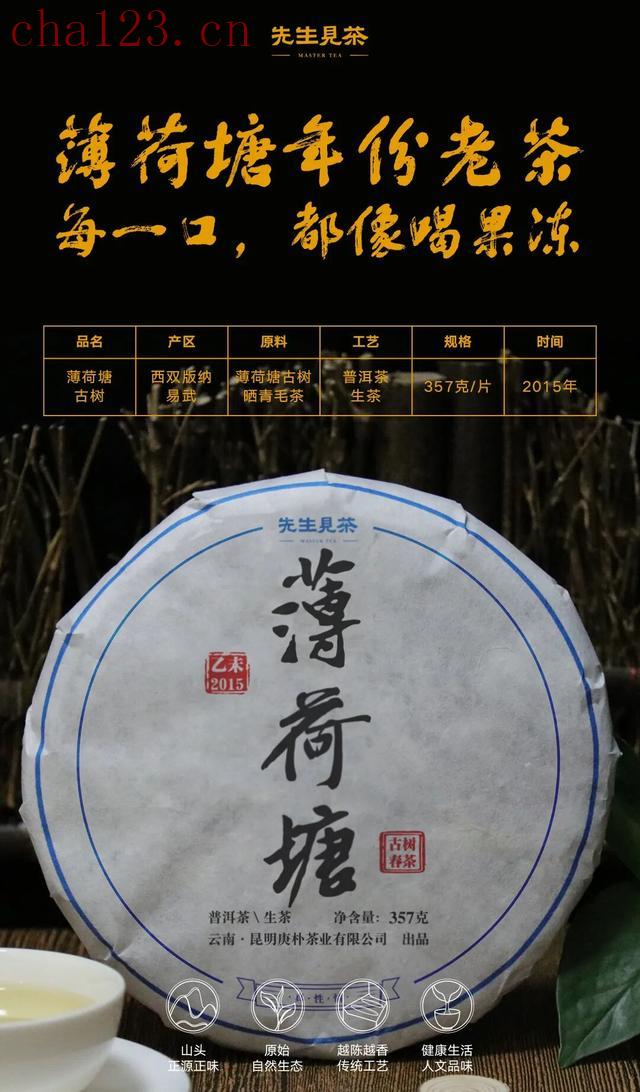 cha123.cn
先生見茶
MASTER TEA
薄荷塘年份老茶
每一口，都像喝果冻
品名 产区 原料 工艺 规格 时间
薄荷塘 西双版纳 薄荷塘古树 普洱茶 357克/片 2015年
古树 易武 晒青毛茶 生茶
先生見茶
MASTER TEA
薄荷塘
乙未
2015
古树
春茶
普洱茶\生茶 净含量：357克
云南·昆明庚朴茶业有限公司 出品
山头 原始 越陈越香 健康生活
正源正味 自然生态 传统工艺 人文品味